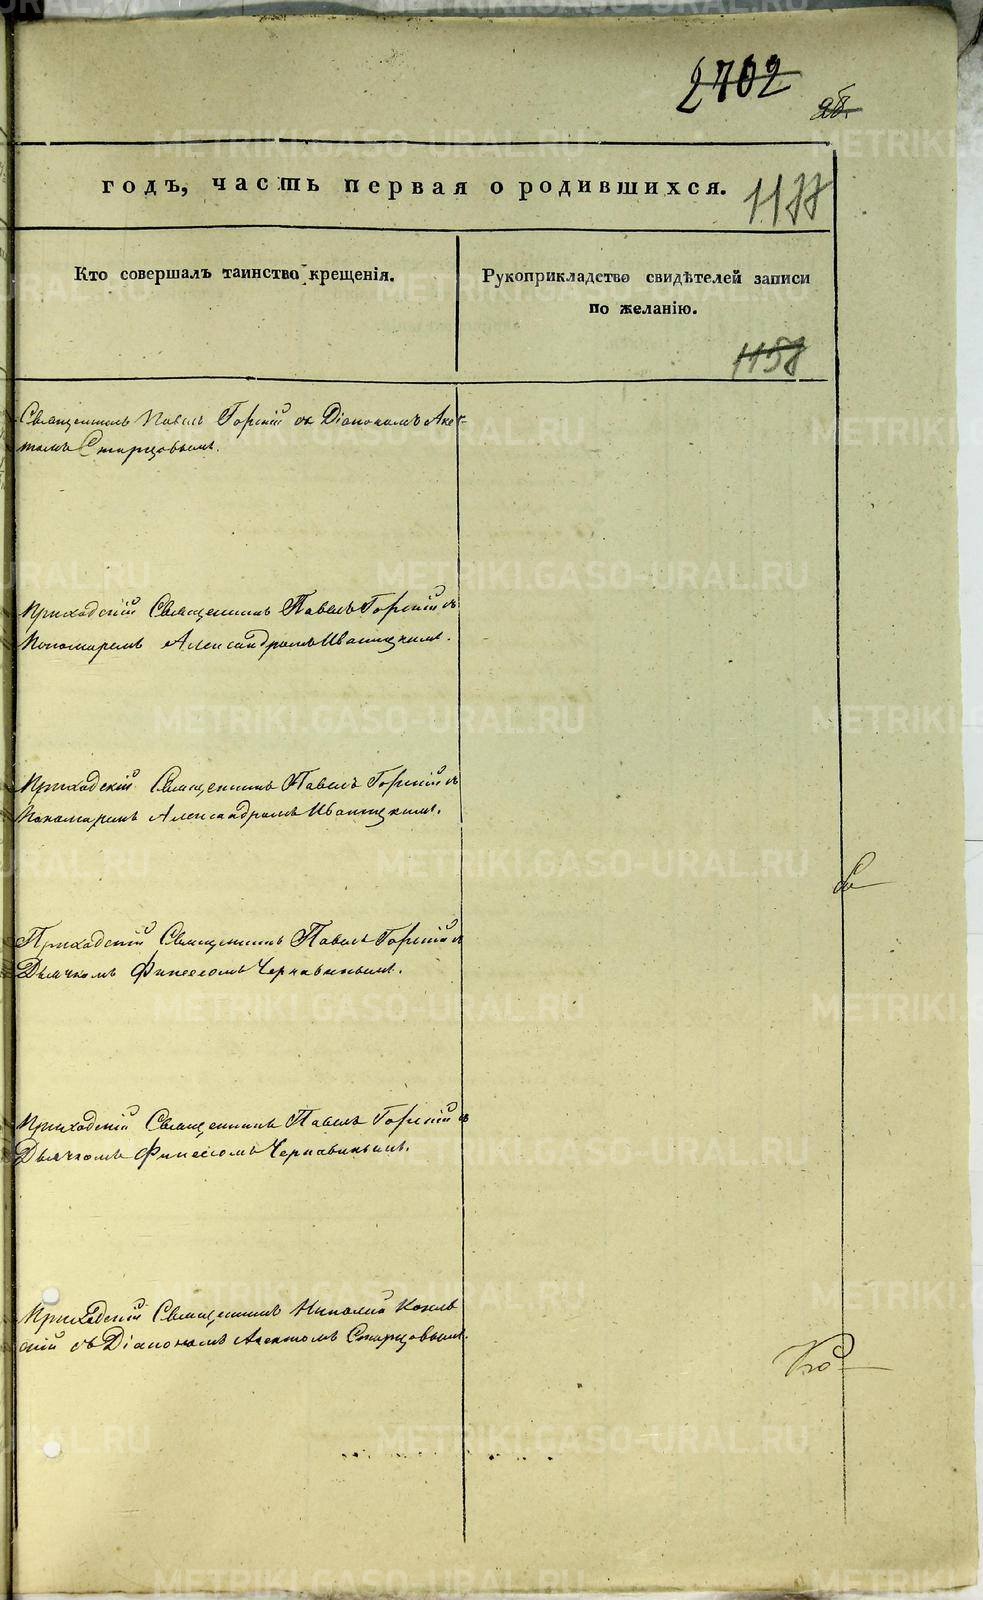 2702
годъ, часть первая о родившихся.
1177
Кто совершалъ таинство крещенія.
Рукоприкладство свидѣтелей записи
по желанію.
1158
Священникъ Павелъ Горскій съ Діакономъ
Старцовымъ.
Приходскій Священникъ Павелъ Горскій съ
Пономаремъ Александромъ Иваницкимъ.
Приходскій Священникъ Павелъ Горскій съ
Пономаремъ Александромъ Иваницкимъ.
Приходскій Священникъ Павелъ Горскій съ
Дьячкомъ Финеесомъ Чернавинымъ.
Приходскій Священникъ Павелъ Горскій съ
Дьячкомъ Финеесомъ Чернавинымъ.
Приходскій Священникъ Николай
скій съ Діакономъ Старцовымъ.
METRIKI.GASO-URAL.RU